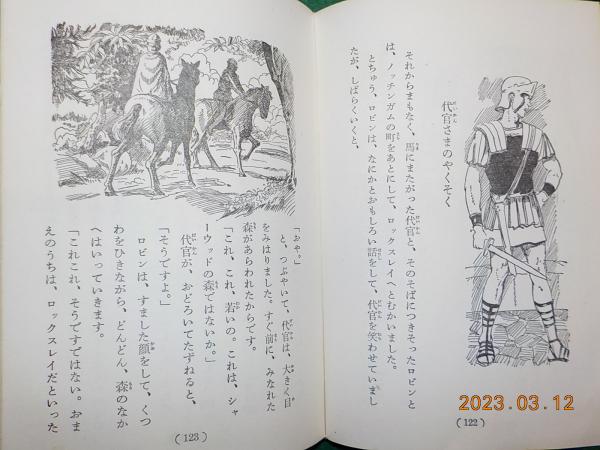 代官さまのやくそく
それからまもなく、馬にまたがった代官と、そのそばにつきそったロビンと
は、ノッチンガムの町をあとにして、ロックスレイへとむかいました。
とちゅう、ロビンは、なにかとおもしろい話をして、代官を笑わせていまし
たが、しばらくいくと、
(122)
「おや。」
と、つぶやいて、代官は、大きく目
をみはりました。すぐ前に、みなれた
森があらわれたからです。
「これ、これ、若いの。これは、シャ
ーウッドの森ではないか。」
代官が、おどろいてたずねると、
「そうですよ。」
ロビンは、すました顔をして、くつ
わをひきながら、どんどん、森のなか
へはいっていきます。
「これこれ、そうですではない。おま
えのうちは、ロックスレイだといった
(123)
2023.03.12